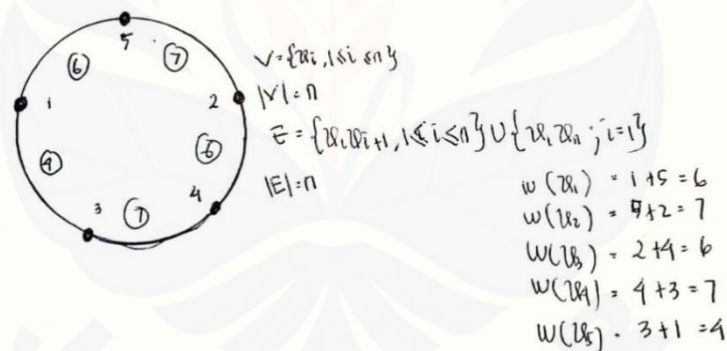 5
⑥ ⑦
1 2
④ ⑥
3 ⑦ 4
V={vi, 1≤i≤n}
|V|=n
E={vivi+1, 1≤i≤n}∪{vivn; i=1}
|E|=n
w(v1) = 1+5=6
w(v2) = 5+2=7
w(v3) = 2+4=6
w(v4) = 4+3=7
w(v5) = 3+1=4